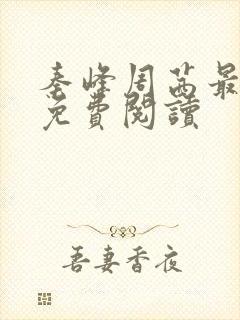 秦峰周茜最
免費閱讀
吾妻香夜